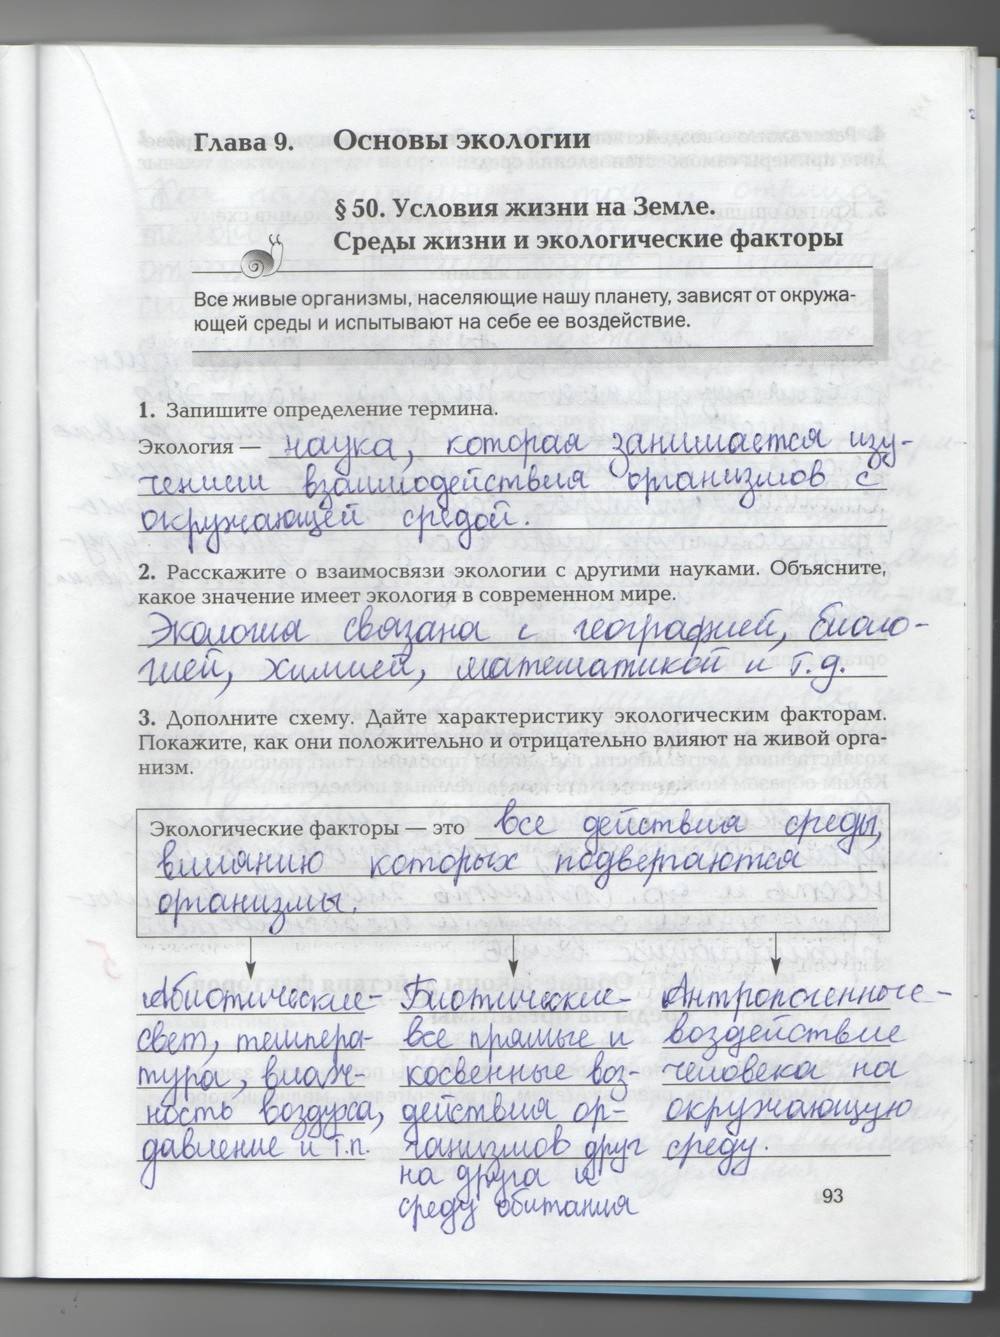 Глава 9. Основы экологии
§ 50. Условия жизни на Земле.
Среды жизни и экологические факторы
Все живые организмы, населяющие нашу планету, зависят от окружа-
ющей среды и испытывают на себе ее воздействие.
1. Запишите определение термина.
Экология — наука, которая занимается изу-
чением взаимодействия организмов с
окружающей средой.
2. Расскажите о взаимосвязи экологии с другими науками. Объясните,
какое значение имеет экология в современном мире.
Экология связана с географией, биоло-
гией, химией, математикой и т.д.
3. Дополните схему. Дайте характеристику экологическим факторам.
Покажите, как они положительно и отрицательно влияют на живой орга-
низм.
Экологические факторы — это все действия среды,
влиянию которых подвергаются
организмы.
Абиотические-
свет, темпера-
тура, влаж-
ность воздуха,
давление и т.п.
Биотические-
все прямые и
косвенные воз-
действия ор-
ганизмов друг
на друга и
среду обитания
Антропогенные-
воздействие
человека на
окружающую
среду.
93